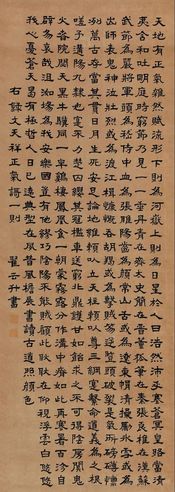 天地有正氣雜然賦流形下則為河嶽上則為日星於人曰浩然沛乎塞蒼冥皇路當清
夷含和吐明庭時窮節乃見一一垂丹青在齊太史簡在晉董狐筆在秦張良椎在漢蘇
武節為嚴將軍頭為嵇侍中血為張睢陽齒為顏常山舌或為遼東帽清操厲冰雪或為
出師表鬼神泣壯烈或為渡江楫慷慨吞胡羯或為擊賊笏逆豎頭破裂是氣所磅礴凜
烈萬古存當其貫日月生死安足論地維賴以立天柱賴以尊三綱實繫命道義為之根
嗟予遘陽九隸也實不力楚囚纓其冠傳車送窮北鼎鑊甘如飴求之不可得陰房闃鬼
火春院閟天黑牛驥同一皁雞棲鳳凰食一朝蒙霧露分作溝中瘠如此再寒暑百沴自
辟易哀哉沮洳場為我安樂國豈有他繆巧陰陽不能賊顧此耿耿在仰視浮雲白悠悠
我心憂蒼天曷有極哲人日已遠典型在夙昔風檐展書讀古道照顏色
右錄文天祥正氣歌一則
翟云升書